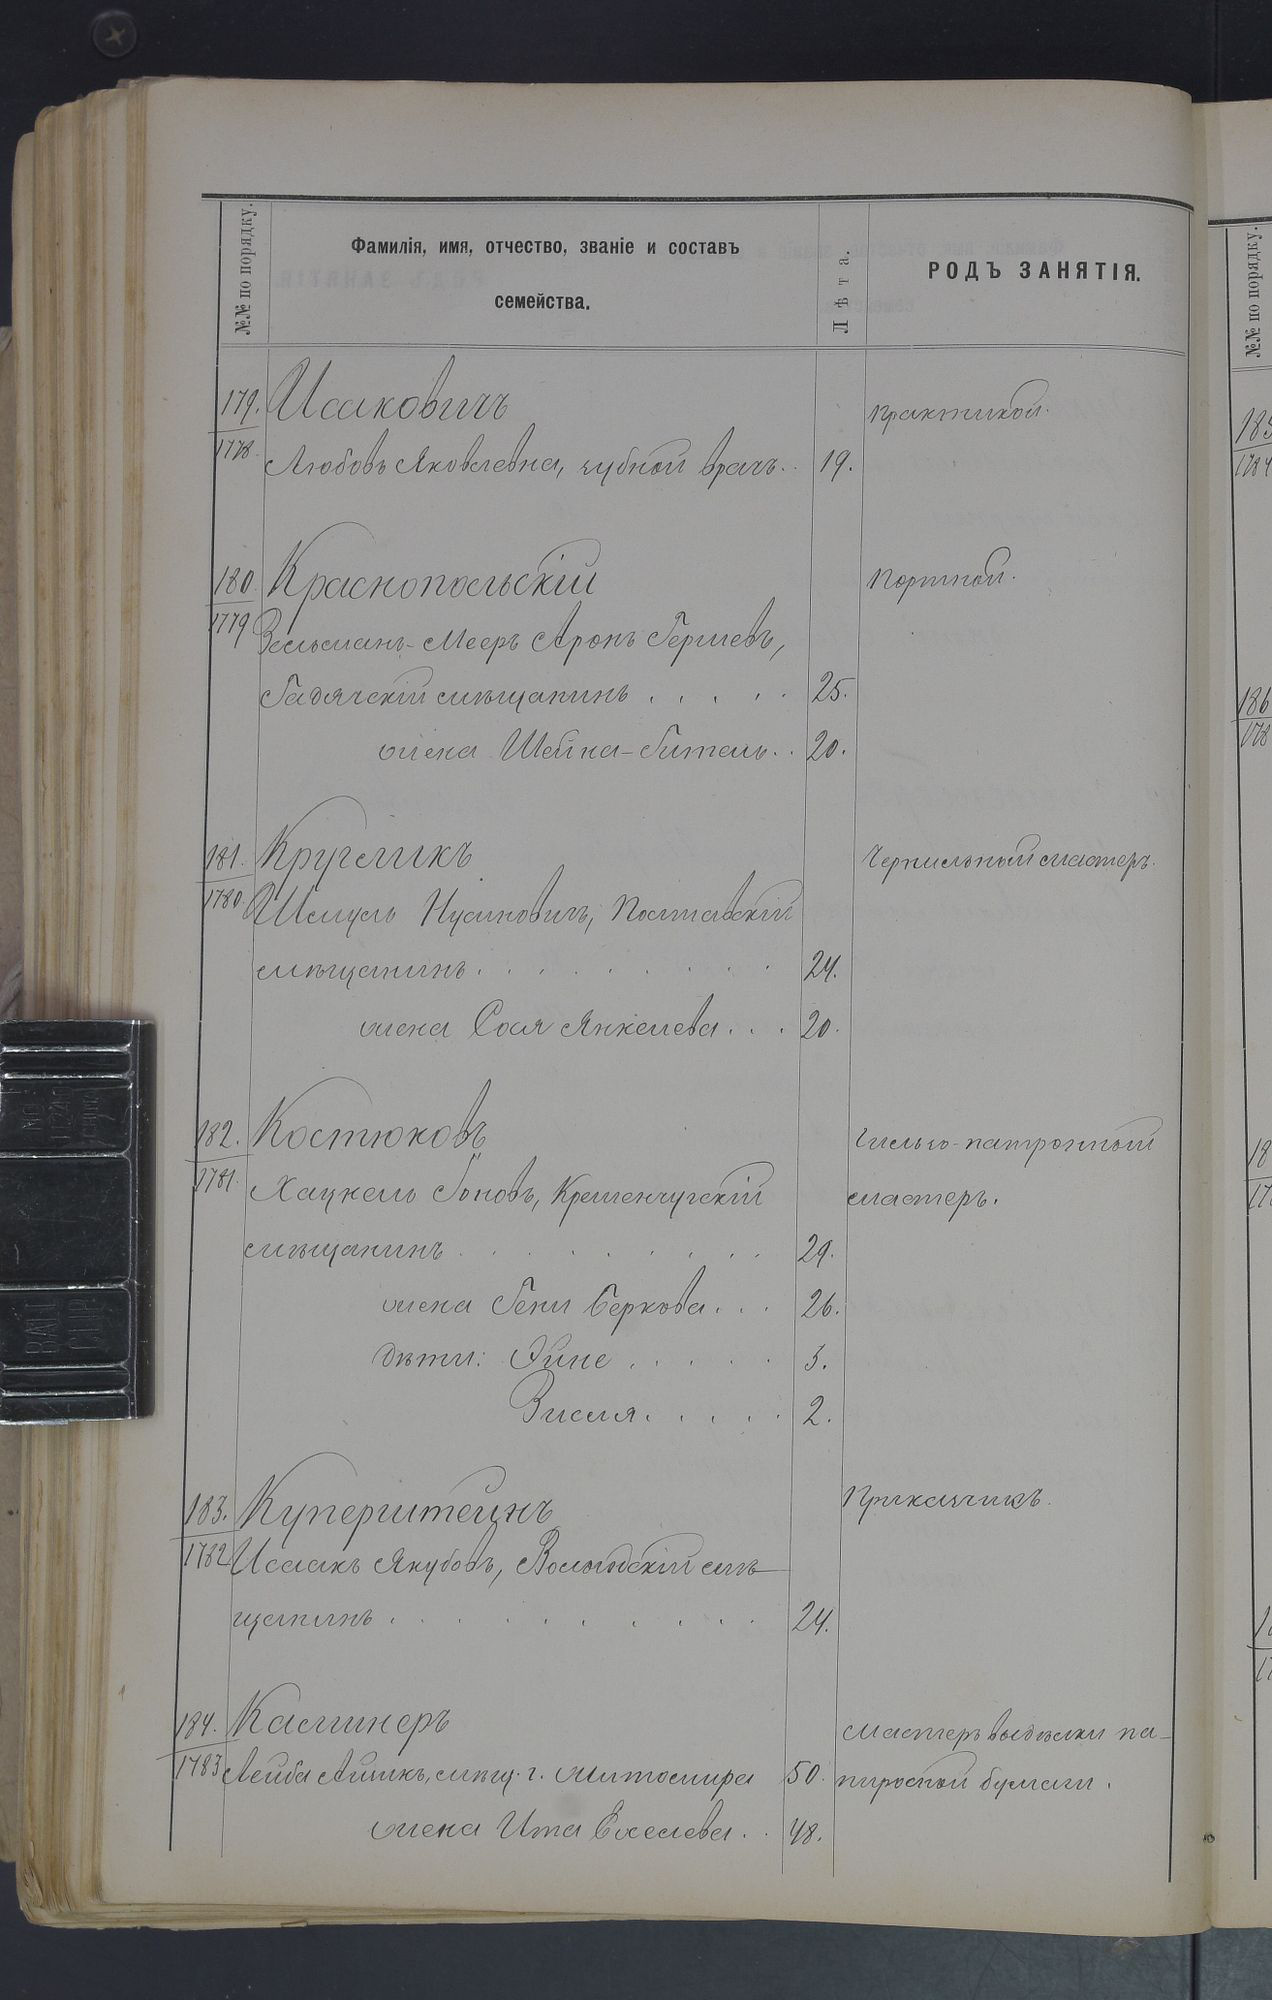 №№ по порядку.
Фамилія, имя, отчество, званіе и составъ
семейства.
Лѣта.
РОДЪ ЗАНЯТІЯ.
179. Исаковичъ
Практикой.
1778. Любовь Яковлевна, зубной врачъ.. 19.
180. Краснопольскій
Портной.
1779 Зельманъ-Мееръ Аронъ Гершевъ,
Гадячскій мѣщанинъ . . . . . 25.
жена Шейна-Гитель.. 20.
181. Кругликъ
Чернильный мастеръ.
1780. Шмуль Нусиновичъ, Полтавскій
мѣщанинъ . . . . . . . . . 24.
жена Соля Янкелева . . . 20.
182. Костюковъ
Гильзо-патронный
1781. Хацкель Гоновъ, Кременчугскій
мастеръ.
мѣщанинъ . . . . . . . . . 29.
жена Гени Беркова . . . 26.
дѣти: Эйне . . . . . 3.
Зисля . . . . . 2.
183. Куперштейнъ
Приказчикъ.
1782 Исаакъ Якубовъ, Вологодскій мѣ-
щанинъ . . . . . . . . . . 24.
184. Каминеръ
Мастеръ выдѣлки па-
1783 Лейба Айзикъ, мѣщ. г. Житомира 50.
пиросной бумаги.
жена Ита Ехелева . . 48.
№№ по порядку.
185
1784
186
178
18
17
BAIT
CLIP